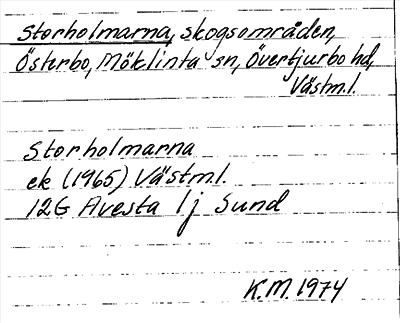 Storholmarna, skogsområden,
Österbo, Möklinta sn, Övertjurbo hd,
Västm.l.
Storholmarna
ek (1965) Västm.l.
12G Avesta 1j Sund
K.M. 1974